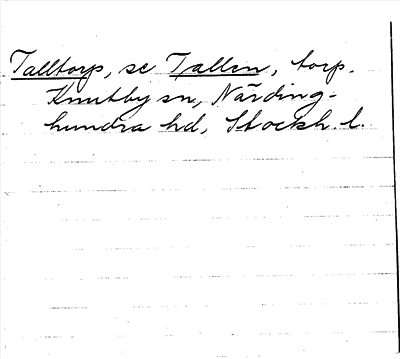 Talltorp, se Tallen, torp.
Knutby sn, Närding-
hundra hd, Stockh. l.